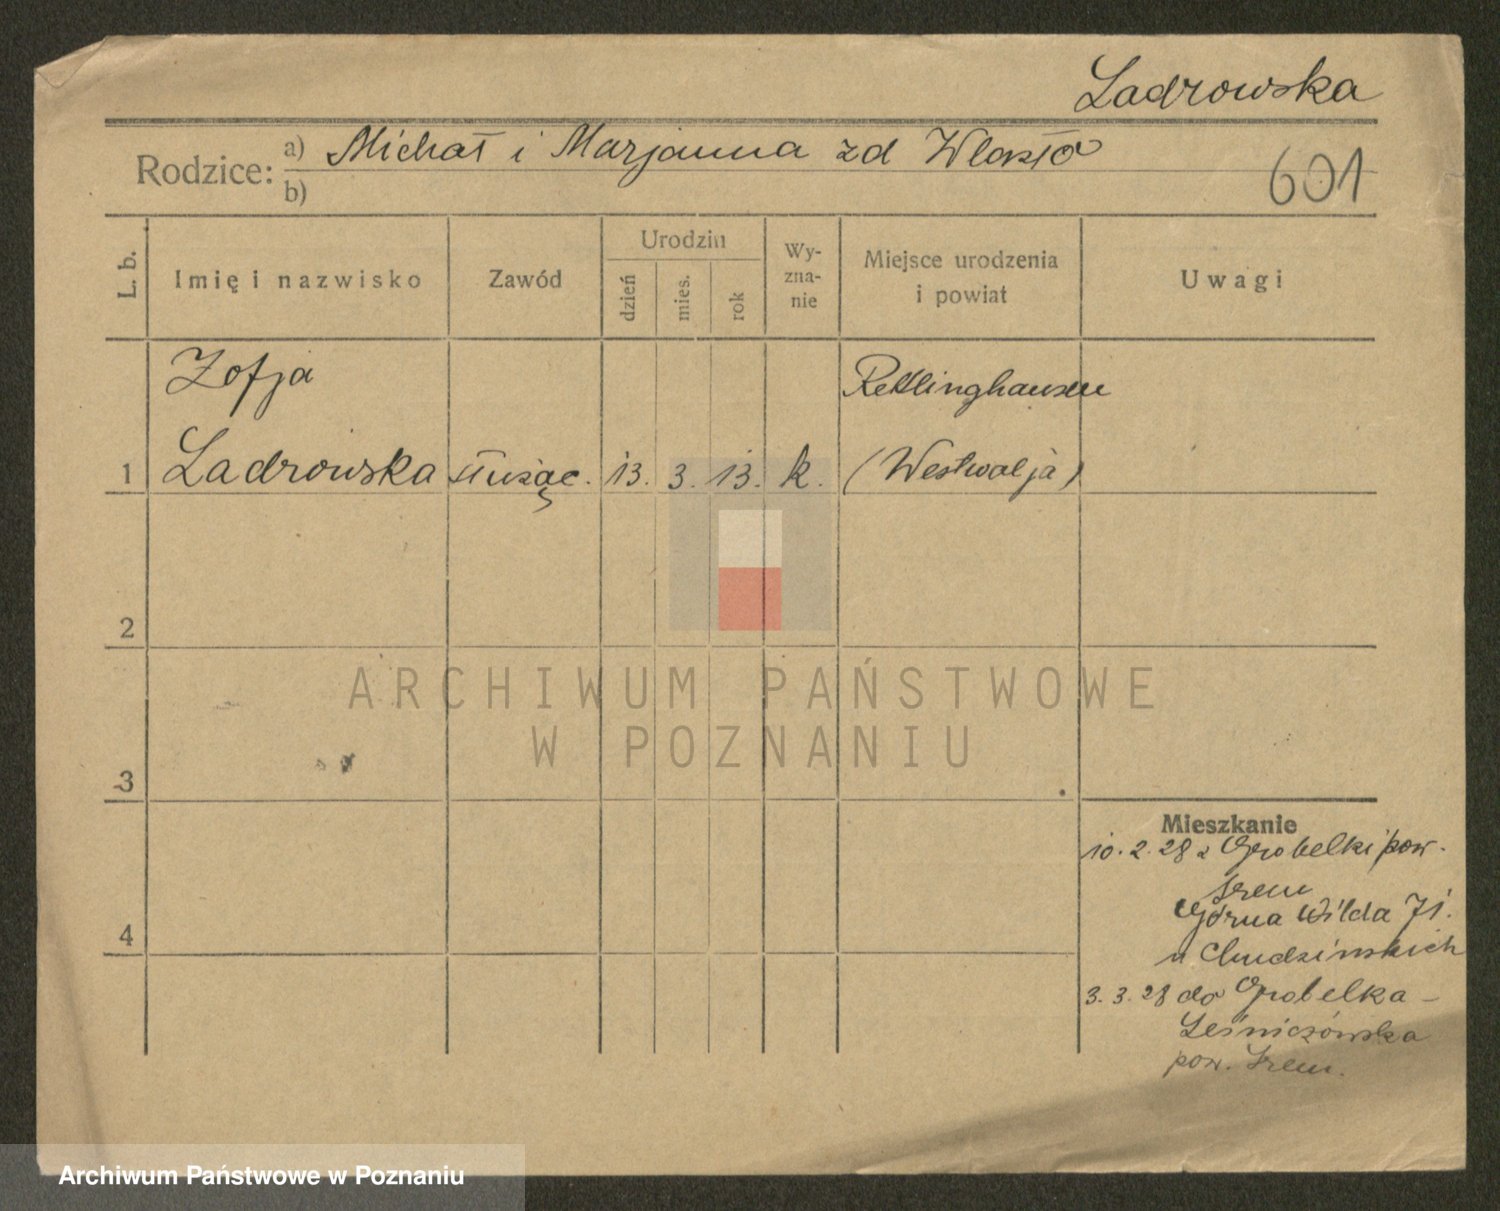 Ladrowska
Rodzice: a) Michał i Marjanna zd Wlazło
b)
601
L. b.
Imię i nazwisko
Zawód
Urodzin
dzień
mies.
rok
Wy-
zna-
nie
Miejsce urodzenia
i powiat
Uwagi
Zofja
Ladrowska
służąc.
13. 3. 13. k.
Reklinghausen
(Westwalja)
1
2
3
4
Mieszkanie
10. 2. 28 z Grobelki pow.
Śrem
Górna Wilda 71.
u Chudzińskich
3. 3. 28 do Grobelka -
Leśniczówska
pow. Śrem.
ARCHIWUM PAŃSTWOWE
W POZNANIU
Archiwum Państwowe w Poznaniu